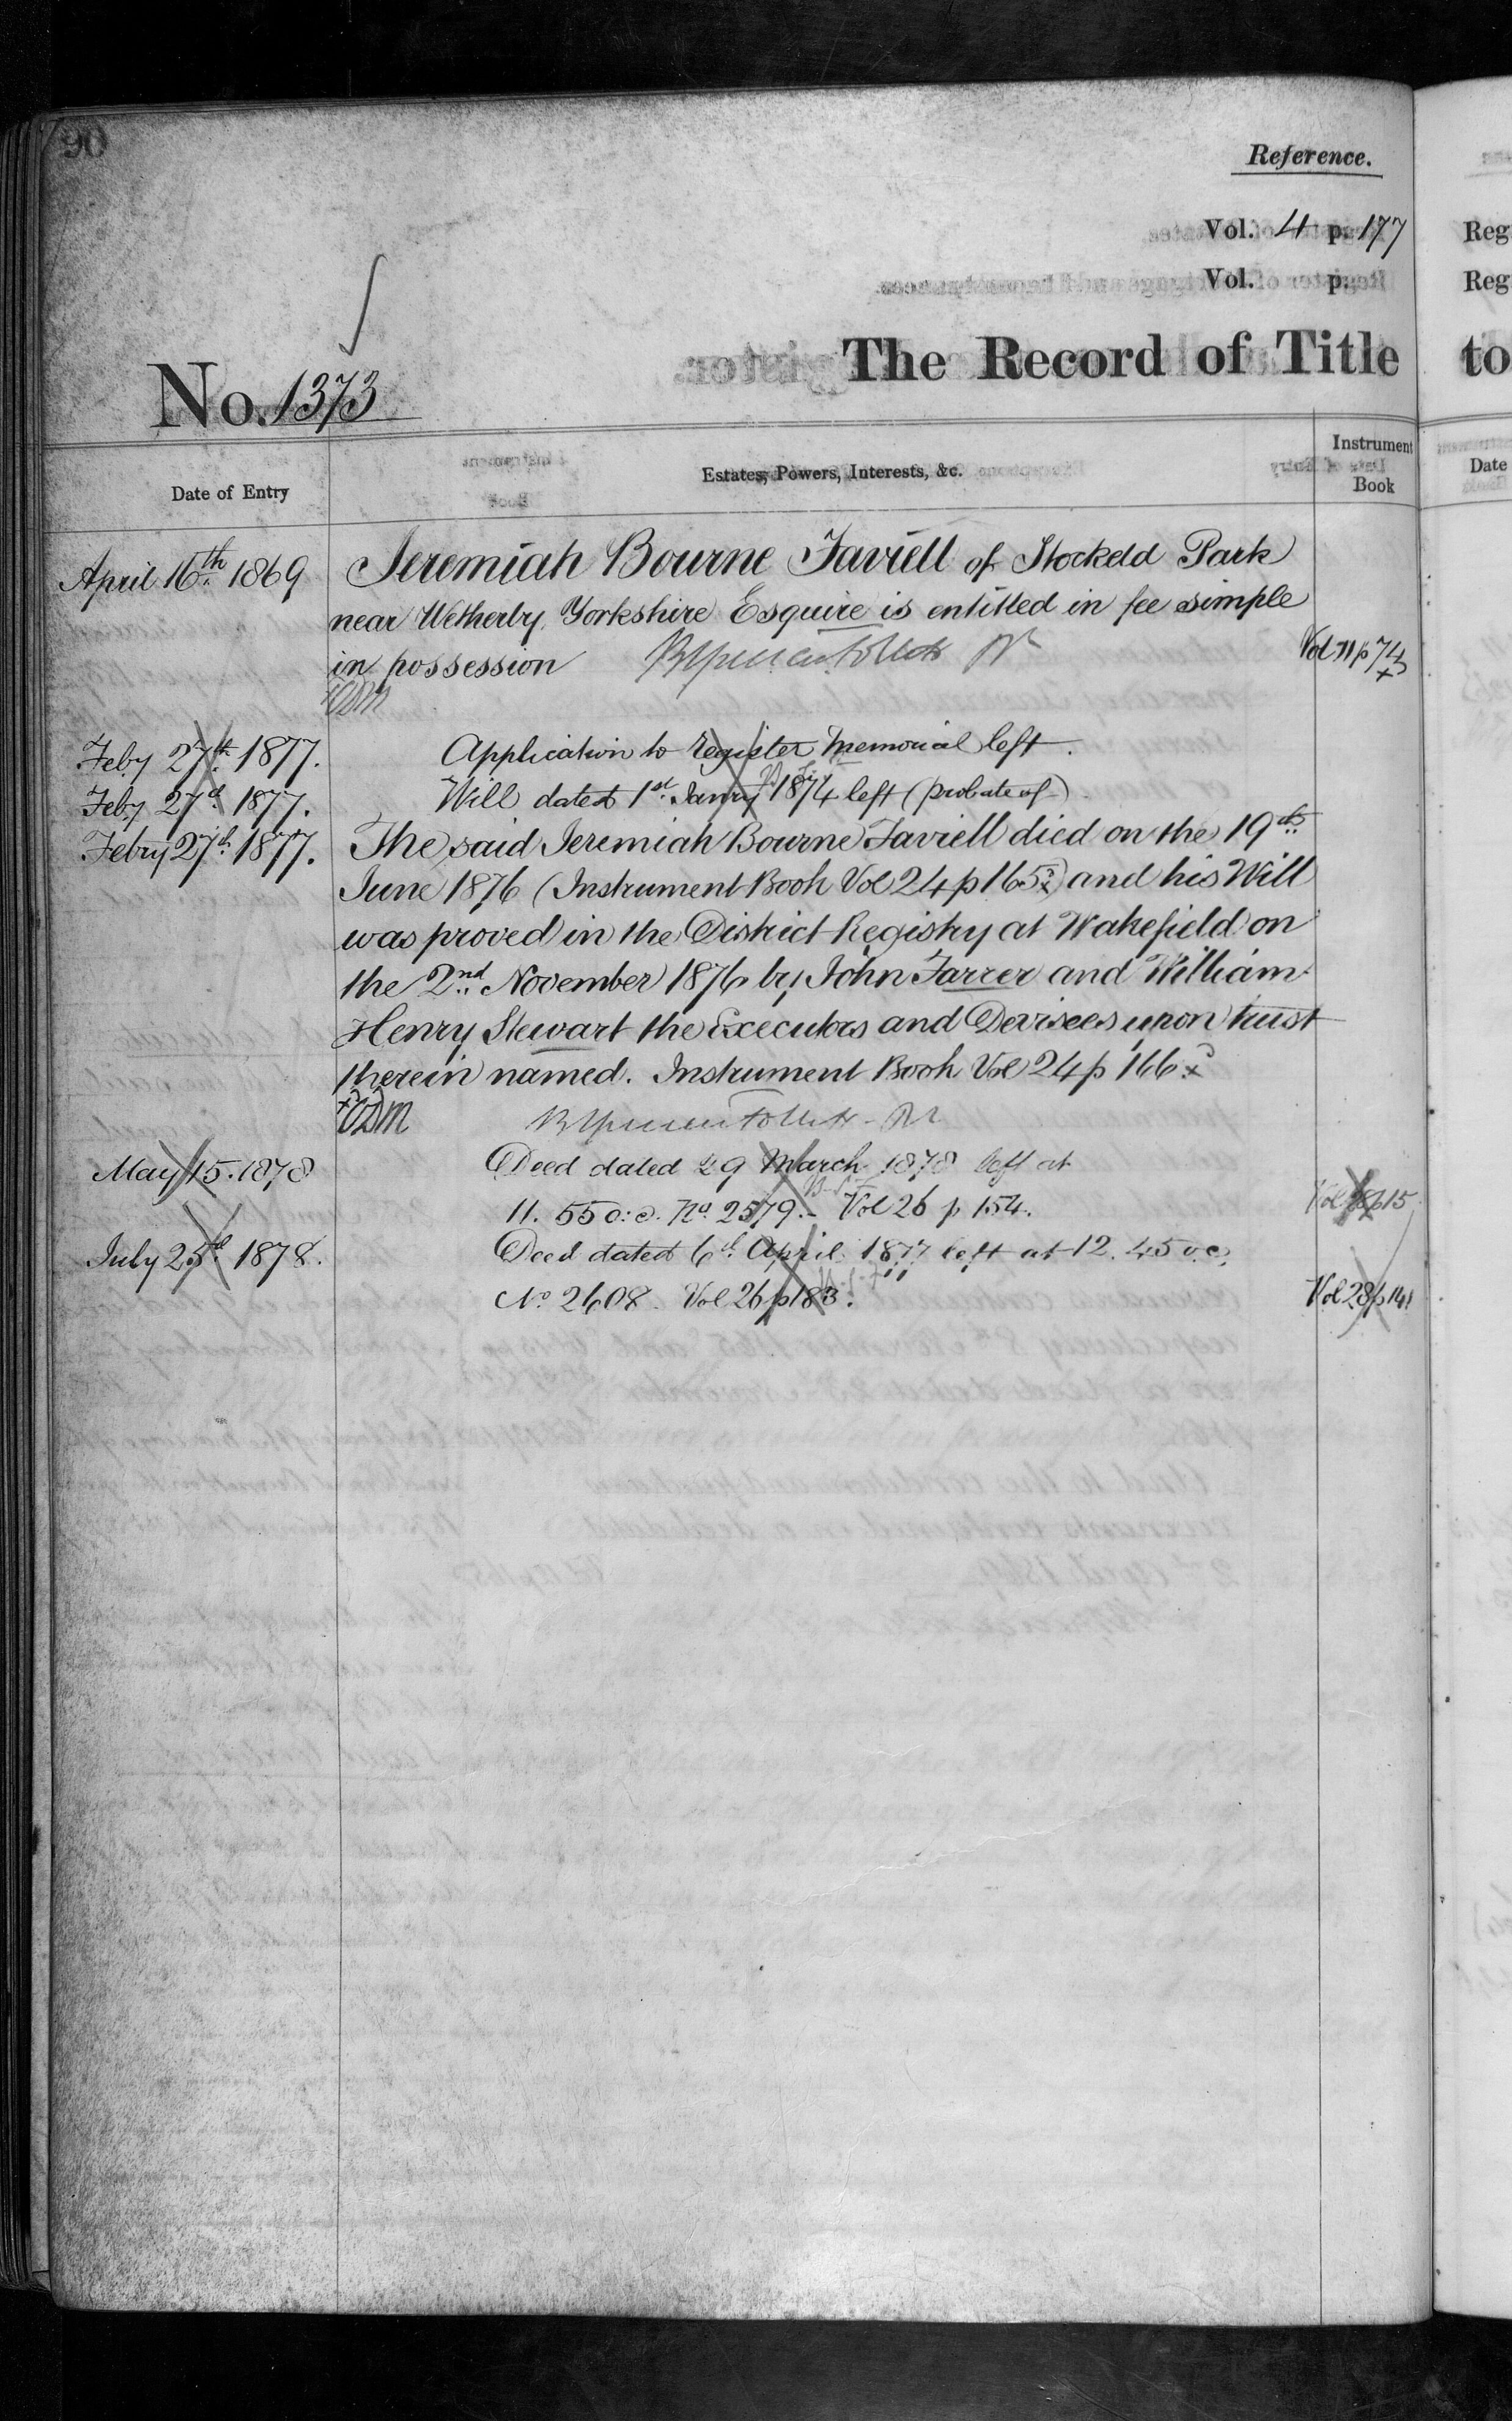 90
Reference.
Vol. 4 p. 177
Vol. p.
The Record of Title
No. 1373
Date of Entry
Estates, Powers, Interests, &c.
Instrument
Book
April 16th 1869
Jeremiah Bourne Faviell of Stockeld Park
near Wetherby Yorkshire Esquire is entitled in fee simple
in possession
Vol 11 p 74
Feby 27th 1877.
Application to register memorial left.
Feby 27th 1877.
Will dated 1st Janry 1874 left (probate of)
Febry 27th 1877.
The said Jeremiah Bourne Faviell died on the 19th
June 1876 (Instrument Book Vol 24 p 165) and his Will
was proved in the District Registry at Wakefield on
the 2nd November 1876 by John Farrer and William
Henry Stewart the Executors and Devisees upon trust
therein named. Instrument Book Vol 24 p 166
May 15. 1878
Deed dated 29 March 1878 left at
11. 55 o:c. No. 2579. Vol 26 p 154.
July 25th 1878.
Deed dated 6th April 1877 left at 12. 45 o.c.
No 2608. Vol 26 p 183.
Vol 28 p 141
Reg
Reg
to
Date